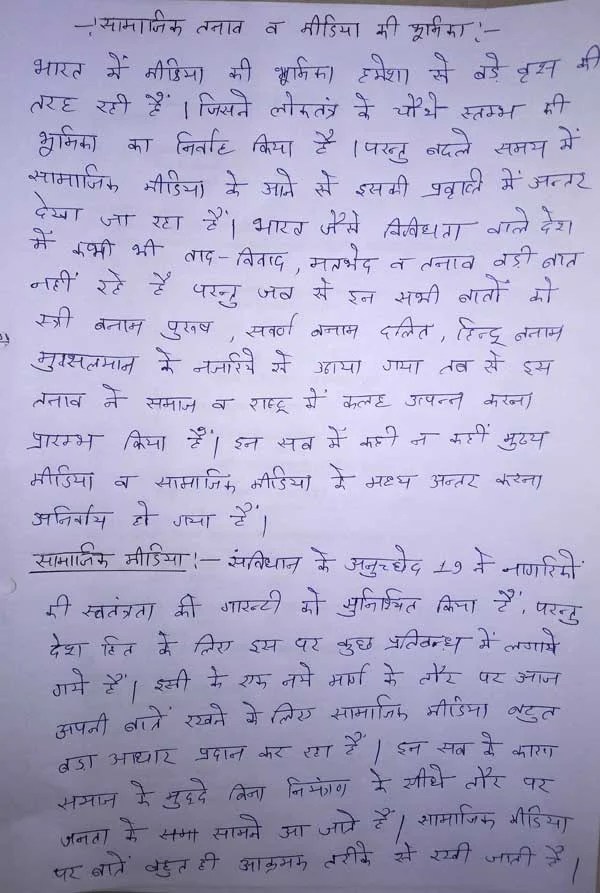 -: सामाजिक तनाव व मीडिया की भूमिका :-
भारत में मीडिया की भूमिका हमेशा से बड़े वृक्ष की
तरह रही हैं । जिसने लोकतंत्र के चौथे स्तम्भ की
भूमिका का निर्वाह किया है । परन्तु बदले समय में
सामाजिक मीडिया के आने से इसकी प्रवृति में अन्तर
देखा जा रहा हैं । भारत जैसे विविधता वाले देश
में कभी भी वाद-विवाद, मतभेद व तनाव बड़ी बात
नहीं रहे है परन्तु जब से इन सभी बातों को
स्त्री बनाम पुरुष, सवर्ण बनाम दलित, हिन्दू बनाम
मुसलमान के नजरिये से उठाया गया तब से इस
तनाव ने समाज व राष्ट्र में कलह उत्पन्न करना
प्रारम्भ किया हैं । इन सब में कही न कहीं मुख्य
मीडिया व सामाजिक मीडिया के मध्य अन्तर करना
अनिर्वाय हो गया हैं ।
सामाजिक मीडिया :- संविधान के अनुच्छेद 19 ने नागरिकों
की स्वतंत्रता की गारन्टी को सुनिश्चित किया हैं, परन्तु
देश हित के लिए इस पर कुछ प्रतिबन्ध में लगाये
गये हैं । इसी के एक नये मार्ग के तौर पर आज
अपनी बातें रखने के लिए सामाजिक मीडिया बहुत
बडा आधार प्रदान कर रहा हैं । इन सब के कारण
समाज के मुद्दे बिना नियंत्रण के सीधे तौर पर
जनता के सामने आ जाते हैं । सामाजिक मीडिया
पर बातें बहुत ही आक्रमक तरीके से रखी जाती है ।